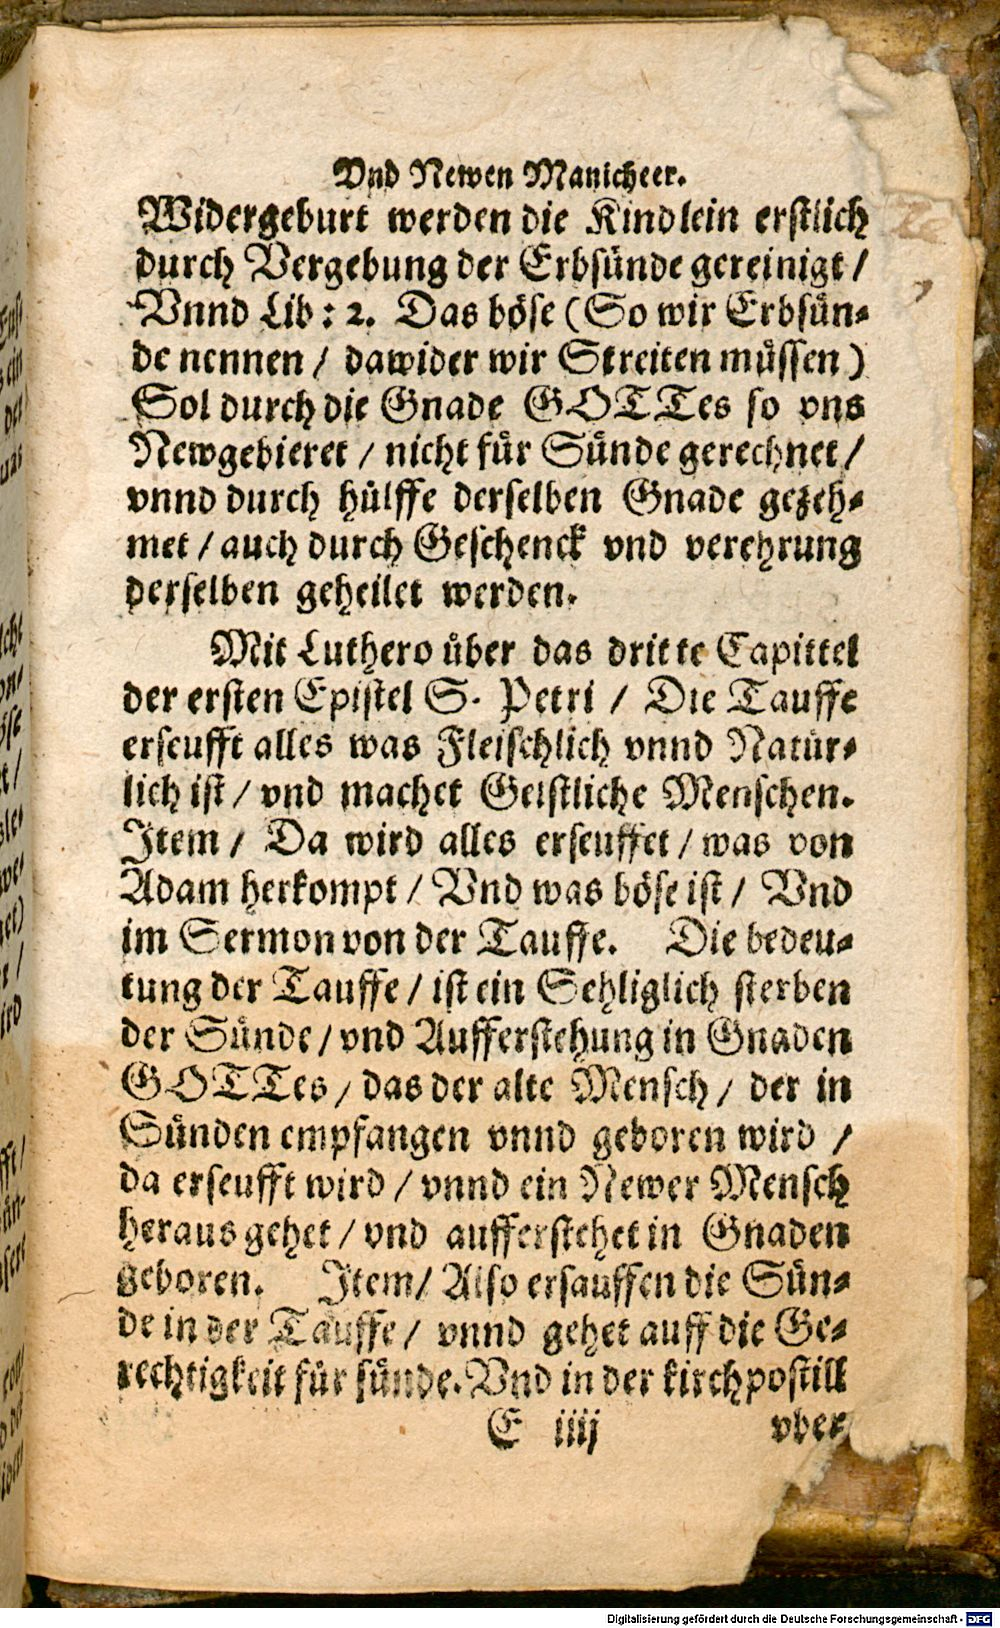 Vnd Newen Manicheer.
Widergeburt werden die Kindlein erstlich
durch Vergebung der Erbsünde gereinigt /
Vnnd Lib : 2. Das böse (So wir Erbsün-
de nennen / dawider wir Streiten müssen)
Sol durch die Gnade GOTTes so vns
Newgebieret / nicht für Sünde gerechnet /
vnnd durch hülffe derselben Gnade gezeh-
met / auch durch Geschenck vnd verehrung
derselben geheilet werden.
Mit Luthero über das dritte Capittel
der ersten Epistel S. Petri / Die Tauffe
erseufft alles was Fleischlich vnnd Natür-
lich ist / vnd machet Geistliche Menschen.
Item / Da wird alles erseuffet / was von
Adam herkompt / Vnd was böse ist / Vnd
im Sermon von der Tauffe. Die bedeu-
tung der Tauffe / ist ein Sehliglich sterben
der Sünde / vnd Aufferstehung in Gnaden
GOTTes / das der alte Mensch / der in
Sünden empfangen vnnd geboren wird /
da erseufft wird / vnnd ein Newer Mensch
heraus gehet / vnd aufferstehet in Gnaden
geboren. Item / Also ersauffen die Sün-
de in der Tauffe / vnnd gehet auff die Ge-
rechtigkeit für sünde. Vnd in der kirchpostill
E iiij vber
Digitalisierung gefördert durch die Deutsche Forschungsgemeinschaft - DFG